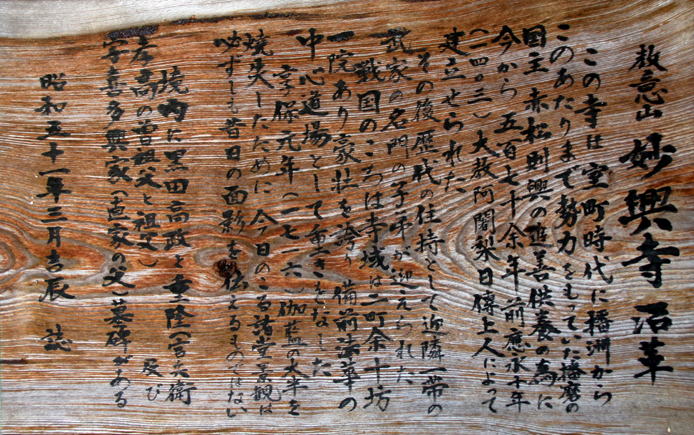 教意山 妙興寺 沿革
この寺は室町時代に播州から
このあたりまで勢力をもていた播磨の
国主赤松則興の追善供養の為に
今から五百七十余年前應永十年
(一四〇三)大教阿闍梨日傳上人によって
建立せられた
その後歴代の住持として近隣一帯の
武家の名門の子弟が迎えられた
戦国のころは寺域は二町余十坊
一院あり豪壮を誇り備前法華の
中心道場として重きをなした
享保元年(一七一六)伽藍の大半を
焼失したために今日のこる諸堂景観は
必ずしも昔日の面影を伝えるものではない
境内に黒田高政と重隆(官兵衛
孝高の曽祖父と祖父)及び
宇喜多興家(直家の父)墓碑がある
昭和五十一年三月吉辰 誌